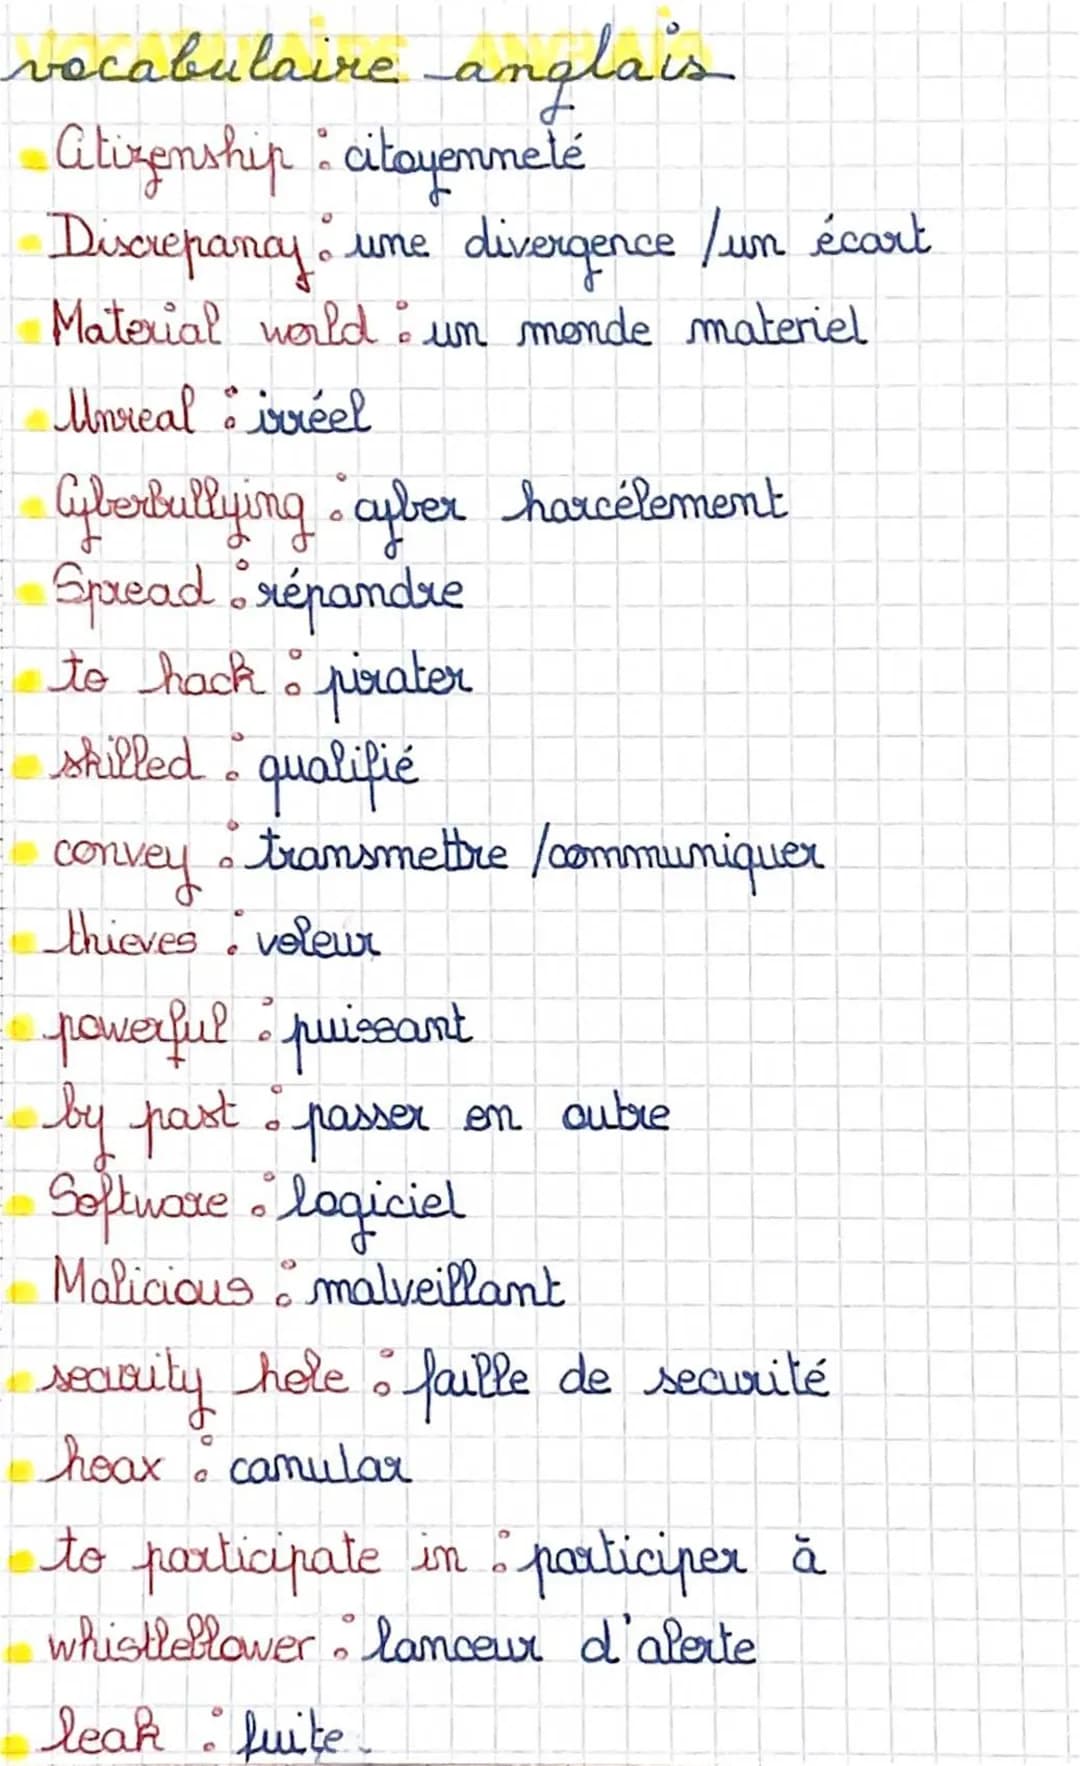 vocabulaire anglais
Citizenship : citoyenneté
Discrepancy : une divergence / un écart
Material world : un monde materiel
Unreal : irréel
Cyberbullying : cyber harcélement
Spread : répandre
to hack : pirater
skilled : qualifié
convey : transmettre / communiquer
thieves : voleur
powerful : puissant
by past : passer en outre
Software : logiciel
Malicious : malveillant
security hole : faille de securité
hoax : canular
to participate in : participer à
whistleblower : lanceur d'alerte
leak : fuite